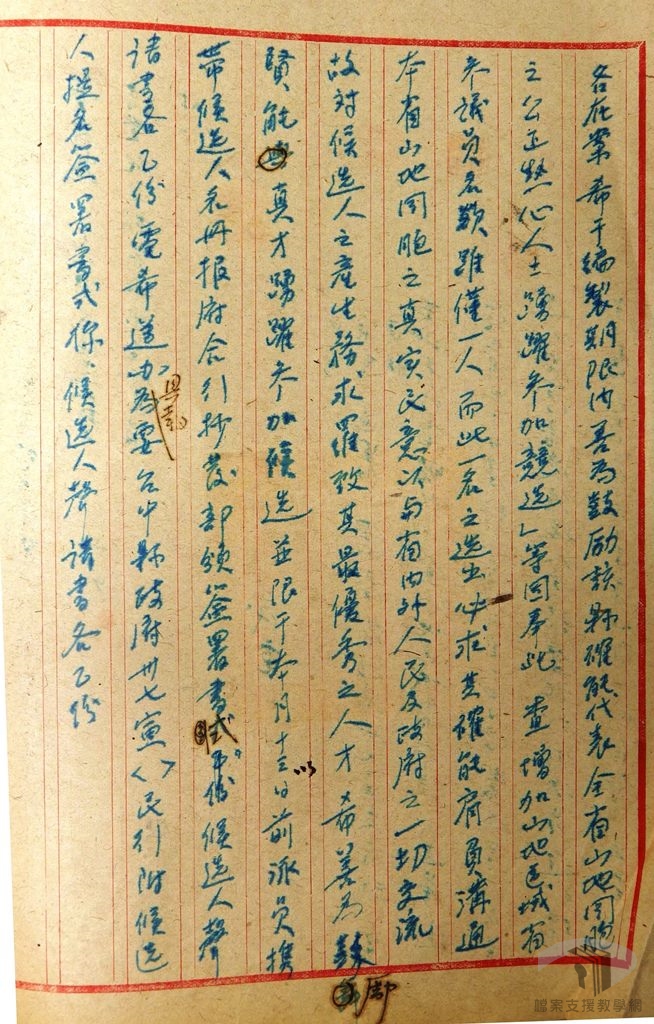 各在案希于編製期限內善為鼓勵該縣確能代表全省山地同胞
之公正熱心人士踴躍參加競選」等因奉此查增加山地區域省
參議員名額雖僅一人而此一名之選出必求其確能肩負溝通
本省山地同胞之真實民意以與省內外人民及政府之一切交流
故對候選人之產生務求羅致其最優秀之人才希善為鼓
賢能真才踴躍參加候選並限于本月十三日以前派員攜
帶候選人名冊報府合行抄發部頒簽署書式候選人聲
請書各乙份電希遵办具報為要台中縣政府卅七寅〈〉民行附候選
人提名簽署書式 候選人聲請書各乙份
鄉
檔案支援教學網